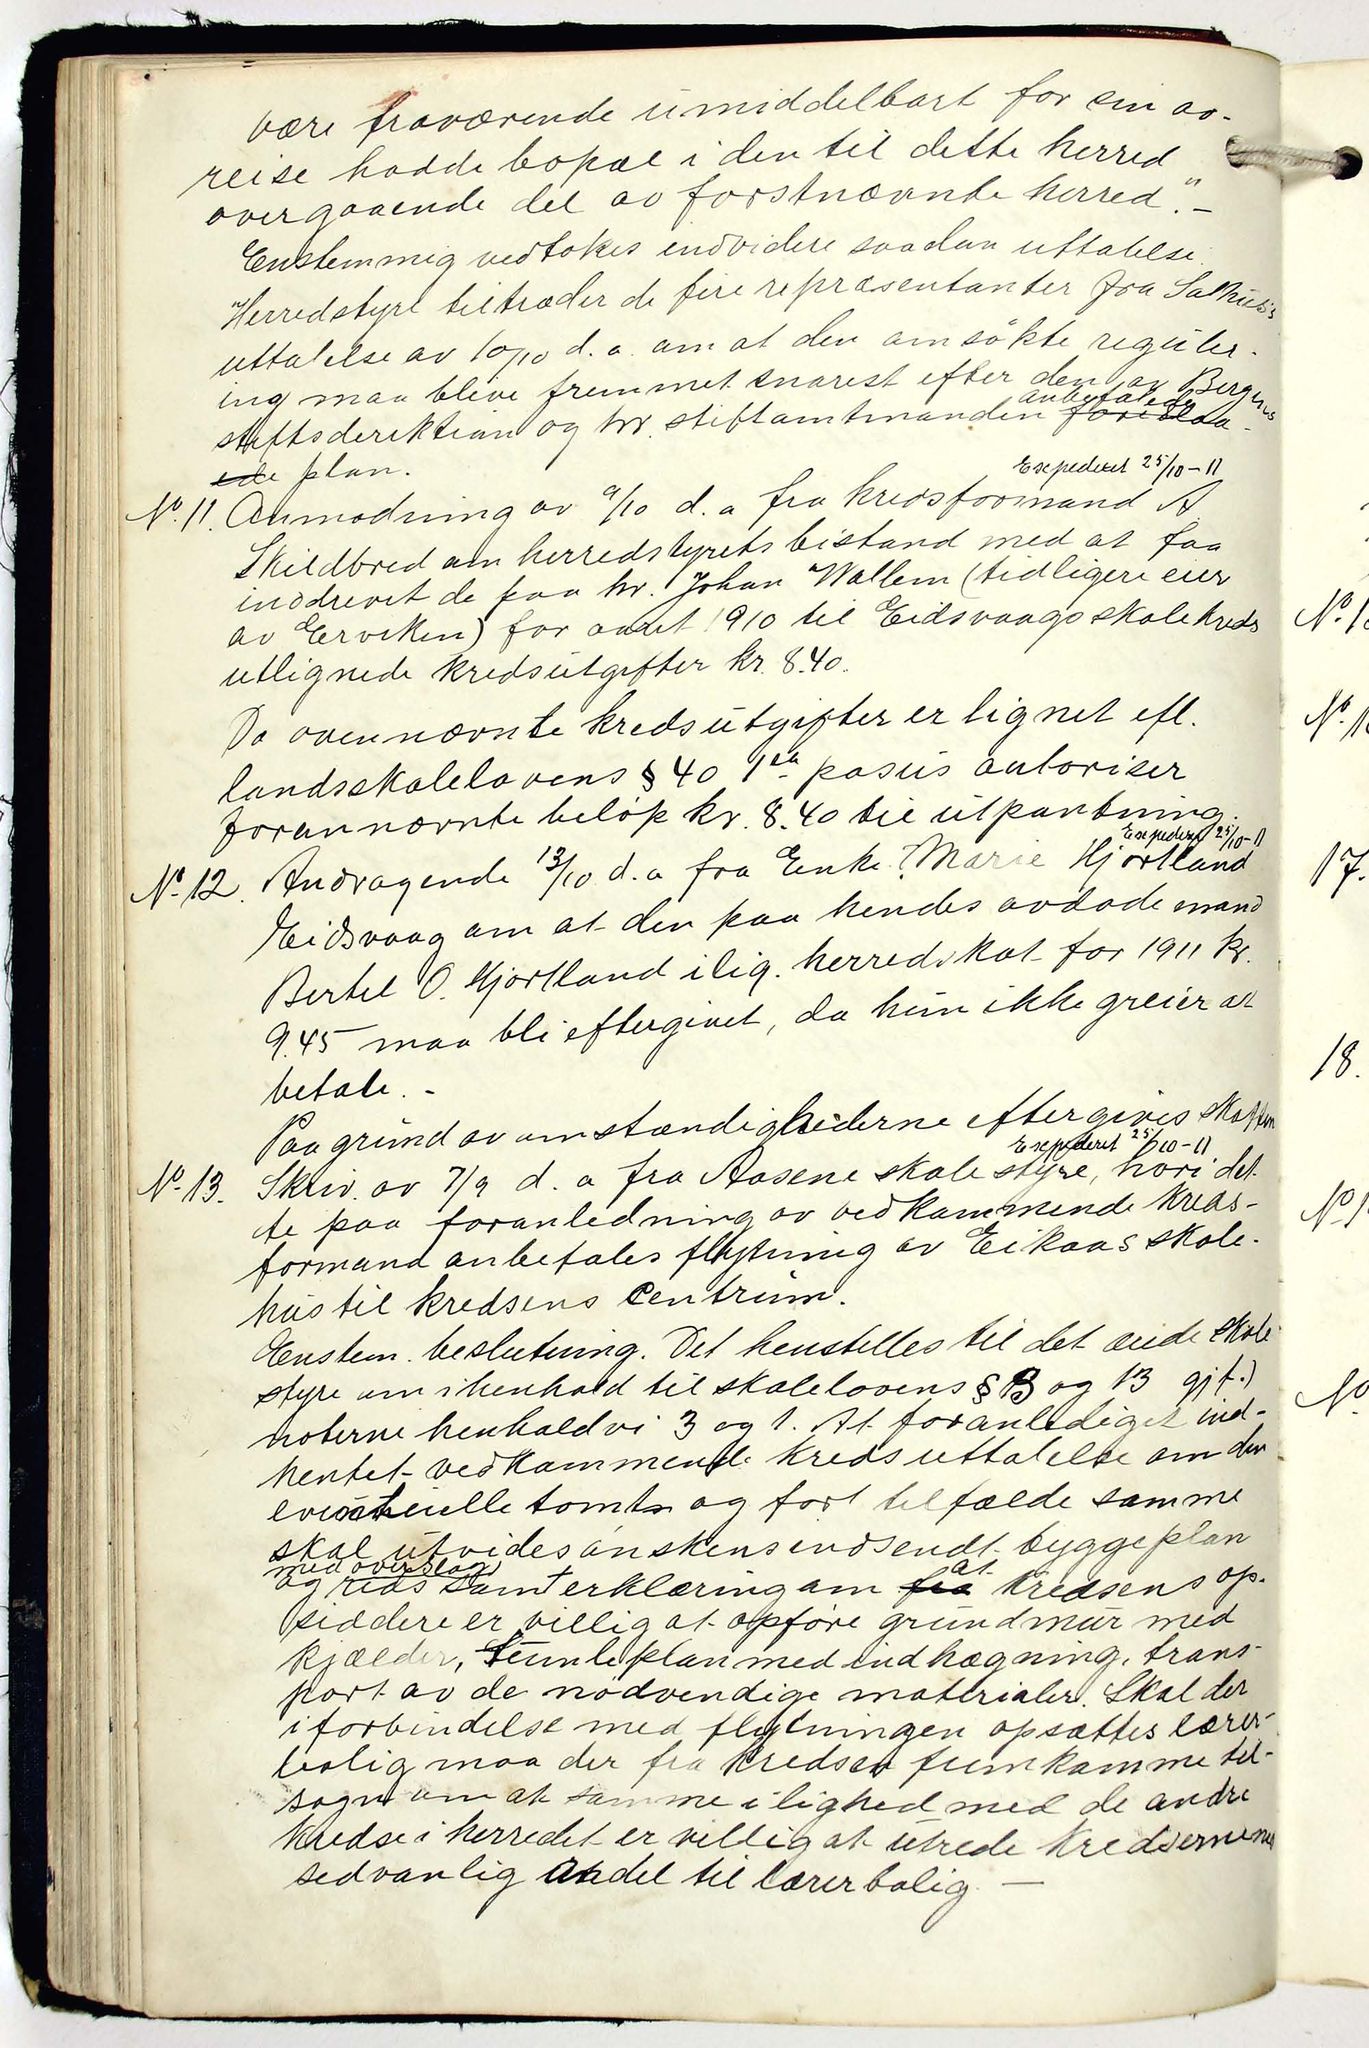 være fraværende umiddelbart for sin av-
reise hadde bopæl i den til dette herred
overgaaende del av førstnævnte herred."-
Enstemmig vedtokes endvidere saadan uttalelse.
"Herredstyre tiltræder de fire repræsentanter fra Salhus's
uttalelse av 10/10 d.a. om at den omsökte reguler-
ing maa blive fremmet snarest efter den av Bergens
anbefalede
stiftsderektion og hr. stiftamtmanden foreslaa-
ede plan.
Exepederet 25/10-11
No. 11. Anmodning av 9/10 d.a fra kredsformand A
Skildbred om herredstyrets bistand med at faa
inddrevet de paa hr. Johan Wallem (tidligere eier
av Eerviken) for aaret 1910 til Eidsvaags skolekreds
utlignede kredsutgifter kr. 8.40.
Da ovennævnte kredsutgifter er lignet efl.
landsskolelovens § 40 1ste pasus autoriser
forannævnte belöp kr. 8.40 til utpantning.
Exepederet 25/10-11
No. 12. Andragende 13/10 d.a fra Enke Marie Hjortland
Eidsvaag om at den paa hendes avdøde mand
Bertel O. Hjortland ilig. herredskat for 1911 kr.
9.45 maa bli eftergivet, da hun ikke greier at
betale.-
Paa grund av omstændighederne eftergives skatten
Exepederet 25/10-11
No. 13. Skriv. av 7/9 d.a fra Aasene skolestyre, hvori det-
te paa foranledning av vedkommende kreds-
formand anbefales flytning av Eikaas skole-
hus til kredsens Centrum.
Enstem. beslutning. Det henstilles til det ærede skole
styre om i henhold til skolelovens § 3 og 13 gjt.)
noterne henholdvi 3 og 1. At foranlediget ind-
hentet vedkommende kreds uttalelse om den
eventuelle tomt og fort tilfælde samme
skal utvides önskens indsendt byggeplan
med overslag at
og rids samt erklæring om fra kredsens op-
siddere er villig at opföre grundmur med
kjælder, tunleplan med indhægning, trans-
port av de nödvendige materialer. Skal der
i forbindelse med flytningen opsættes lærer-
bolig maa der fra kredsen fremkomme til-
sagn om at samme i lighed med de andre
kredse i herredet er villig at utrede kredsernes
sedvanlig andel til lærerbolig. —
No. 1
No. 1
17.
18.
No. 1
No.